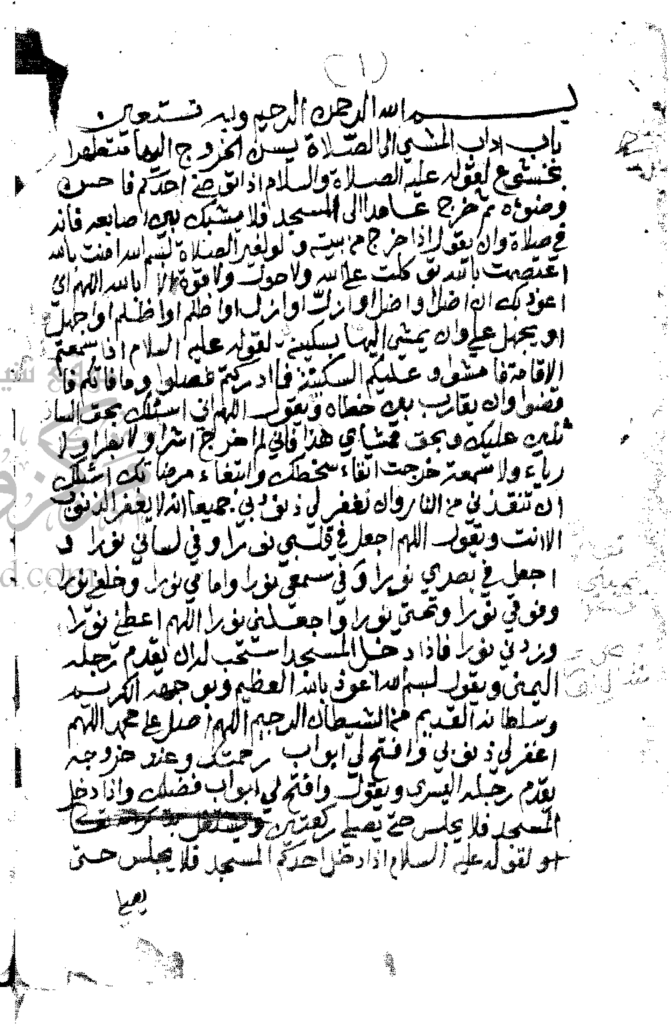 (١)
بسم الله الرحمن الرحيم وبه نستعين
باب اداب المشي الى الصلاة يسن الخروج اليها متطهرا
بخشوع لقوله عليه الصلاة والسلام اذا توضئ احدكم فاحسن
وضوئه ثم خرج عامدا الى المسجد فلا يشبك بين اصابعه فانه
في صلاة وان يقول اذا خرج من بيته ولو لغير الصلاة بسم الله امنت بالله
اعتصمت بالله توكلت على الله ولا حول ولا قوة الا بالله اللهم اني
اعوذ بك ان اضل او اضل او ازل او ازل او اظلم او اظلم او اجهل
او يجهل علي وان يمشي اليها بسكينة لقوله عليه السلام اذا سمعتم
الاقامة فامشو وعليكم السكينة فما ادركتم فصلوا وما فاتكم فا
قضوا وان يقارب بين خطاه ويقول اللهم اني اسئلك بحق السا
ئلين عليك وبحق ممشاي هذا فاني لم اخرج اشرا ولا بطرا ولا
رياء ولا سمعة خرجت اتقاء سخطك وابتغاء مرضاتك اسئلك
ان تنقذني من النار وان تغفر لي ذنوبي جميعا انه لا يغفر الذنوب
الا انت ويقول اللهم اجعل في قلبي نورا وفي لساني نورا و
اجعل في بصري نورا وفي سمعي نورا وامامي نورا وخلفي نورا
وفوقي نورا وتحتي نورا واجعلني نورا اللهم اعطني نورا
وزدني نورا فاذا دخل المسجد استحب له ان يقدم رجله
اليمنى ويقول بسم الله اعوذ بالله العظيم وبوجهه الكريم
وسلطانه القديم من الشيطان الرجيم اللهم صل على محمد اللهم
اغفر لي ذنوبي وافتح لي ابواب رحمتك وعند خروجه
يقدم رجله اليسرى ويقول وافتح لي ابواب فضلك واذا دخل
المسجد فلا يجلس حتى يصلي ركعتين
لقوله عليه السلام اذا دخل احدكم المسجد فلا يجلس حتى
يصلي